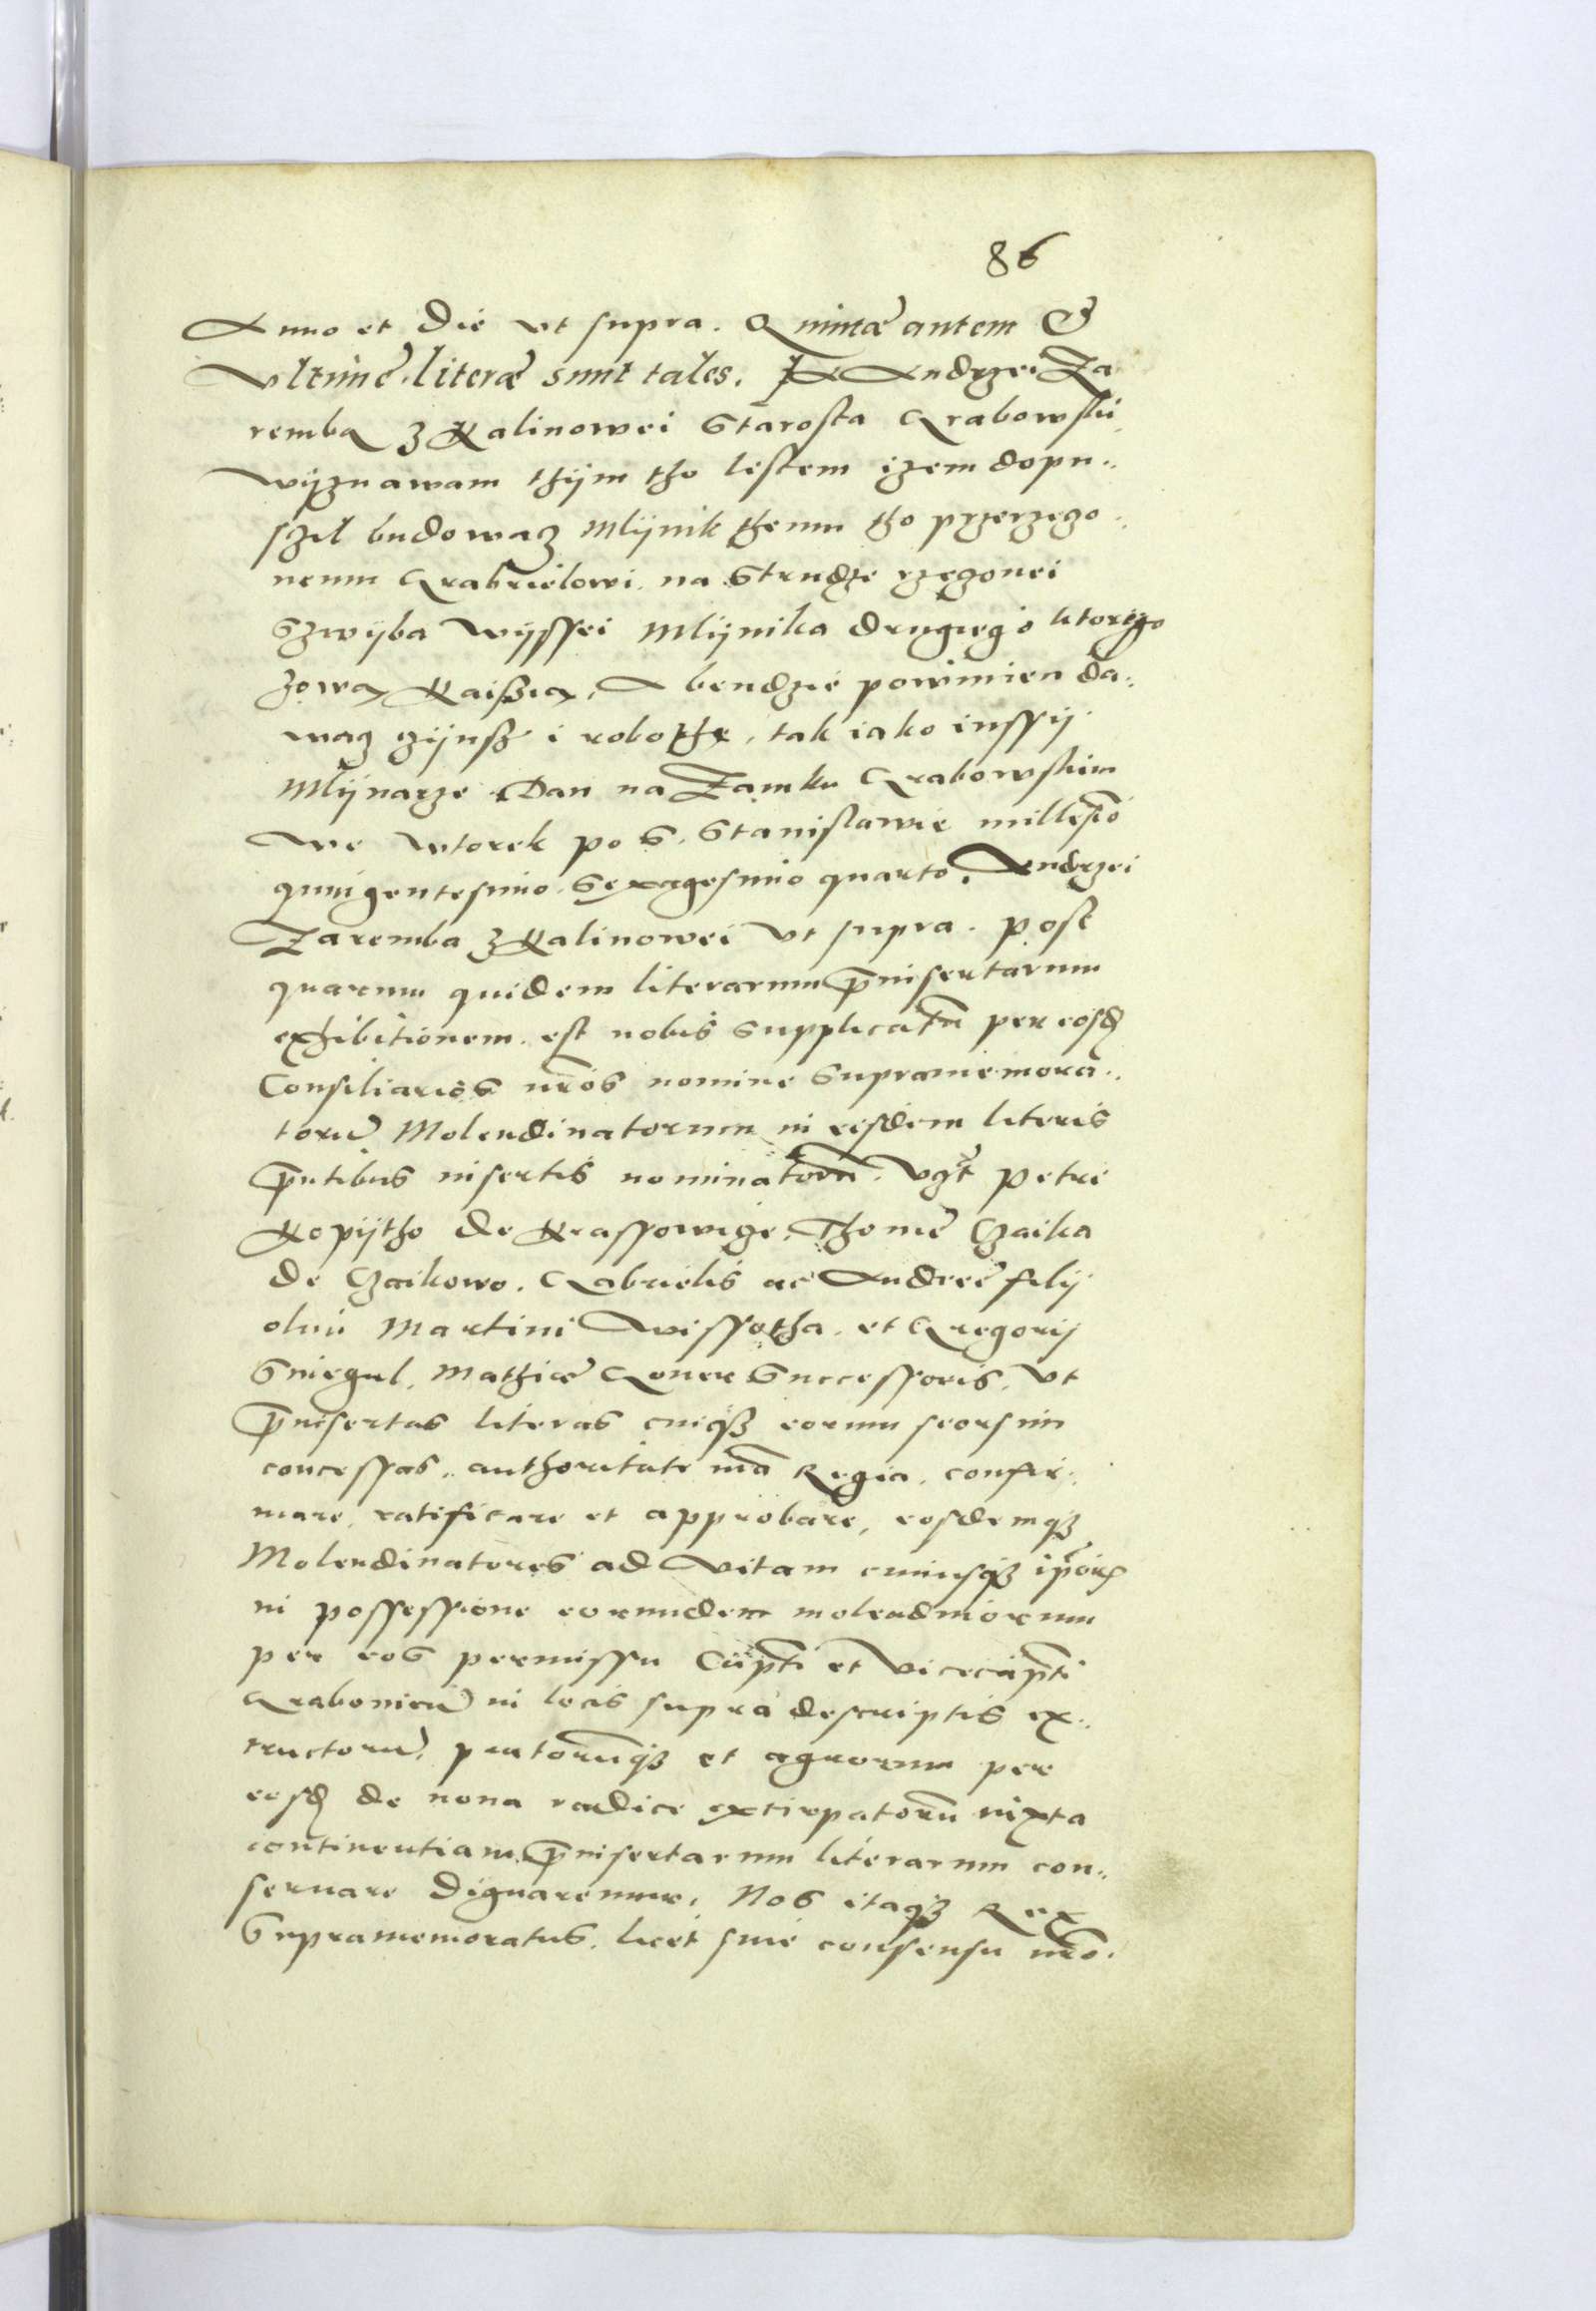 86
Anno et die vt supra. Quintæ autem &
Vltimæ literæ sunt tales. Ja Andrzei Za
remba z Kalinowei Starosta Grabowski
wyznawam thym tho listem izem dopu-
sczil budowacz Mlynik themu tho przerzeczo-
nemu Grabrielowi na Strudze rzeczonei
Szwyba wyssei Mlynika drugiego ktorego
zowa Kaissia, A bendzie powinien da-
wacz czynsz i robothe, tak iako inssy
Mlynarze. Dan na Zamku Grabowskim
we wtorek po S. Stanislawie millesimo
quingentesimo Sexagesimo quarto. Andrzei
Zaremba z Kalinowei vt supra. Post
quarum quidem literarum p̄insertarum
exhibitionem. est nobis Supplicatū per eosd
Consiliarios nr̄os nomine Supramemora-
torū Molendinatorum in eisdem literis
p̄ntibus insertis nominatorū. vꝫt Petri
Kopytho de Krassowicze, Thomæ Czaika
de Czaikowo. Gabrielis ac Andreæ filij
olim Martini Wissotha. et Gregorij
Sniegul. Mathiæ Goner Successoris. vt
p̄insertas literas cuiqꝫ eorum seorsim
concessas, authoritate nr̄a Regia. confir-
mare, ratificare et approbare, eosdemqꝫ
Molendinatores ad vitam cuiusqꝫ ip̄oꝝ
in possessione eorundem molendinorum
per eos permissu Cap̄ti et vicecap̄ti
Graboviens̄ in locis supra descriptis ex-
tructorū, pratorūqꝫ et agrorum per
eosd de nova radice extirpatorū iuxta
continentiam p̄insertarum literarum con-
seruare dignaremur. Nos itaqꝫ Rex
Supramemoratus. licet sine consensu nr̄o.